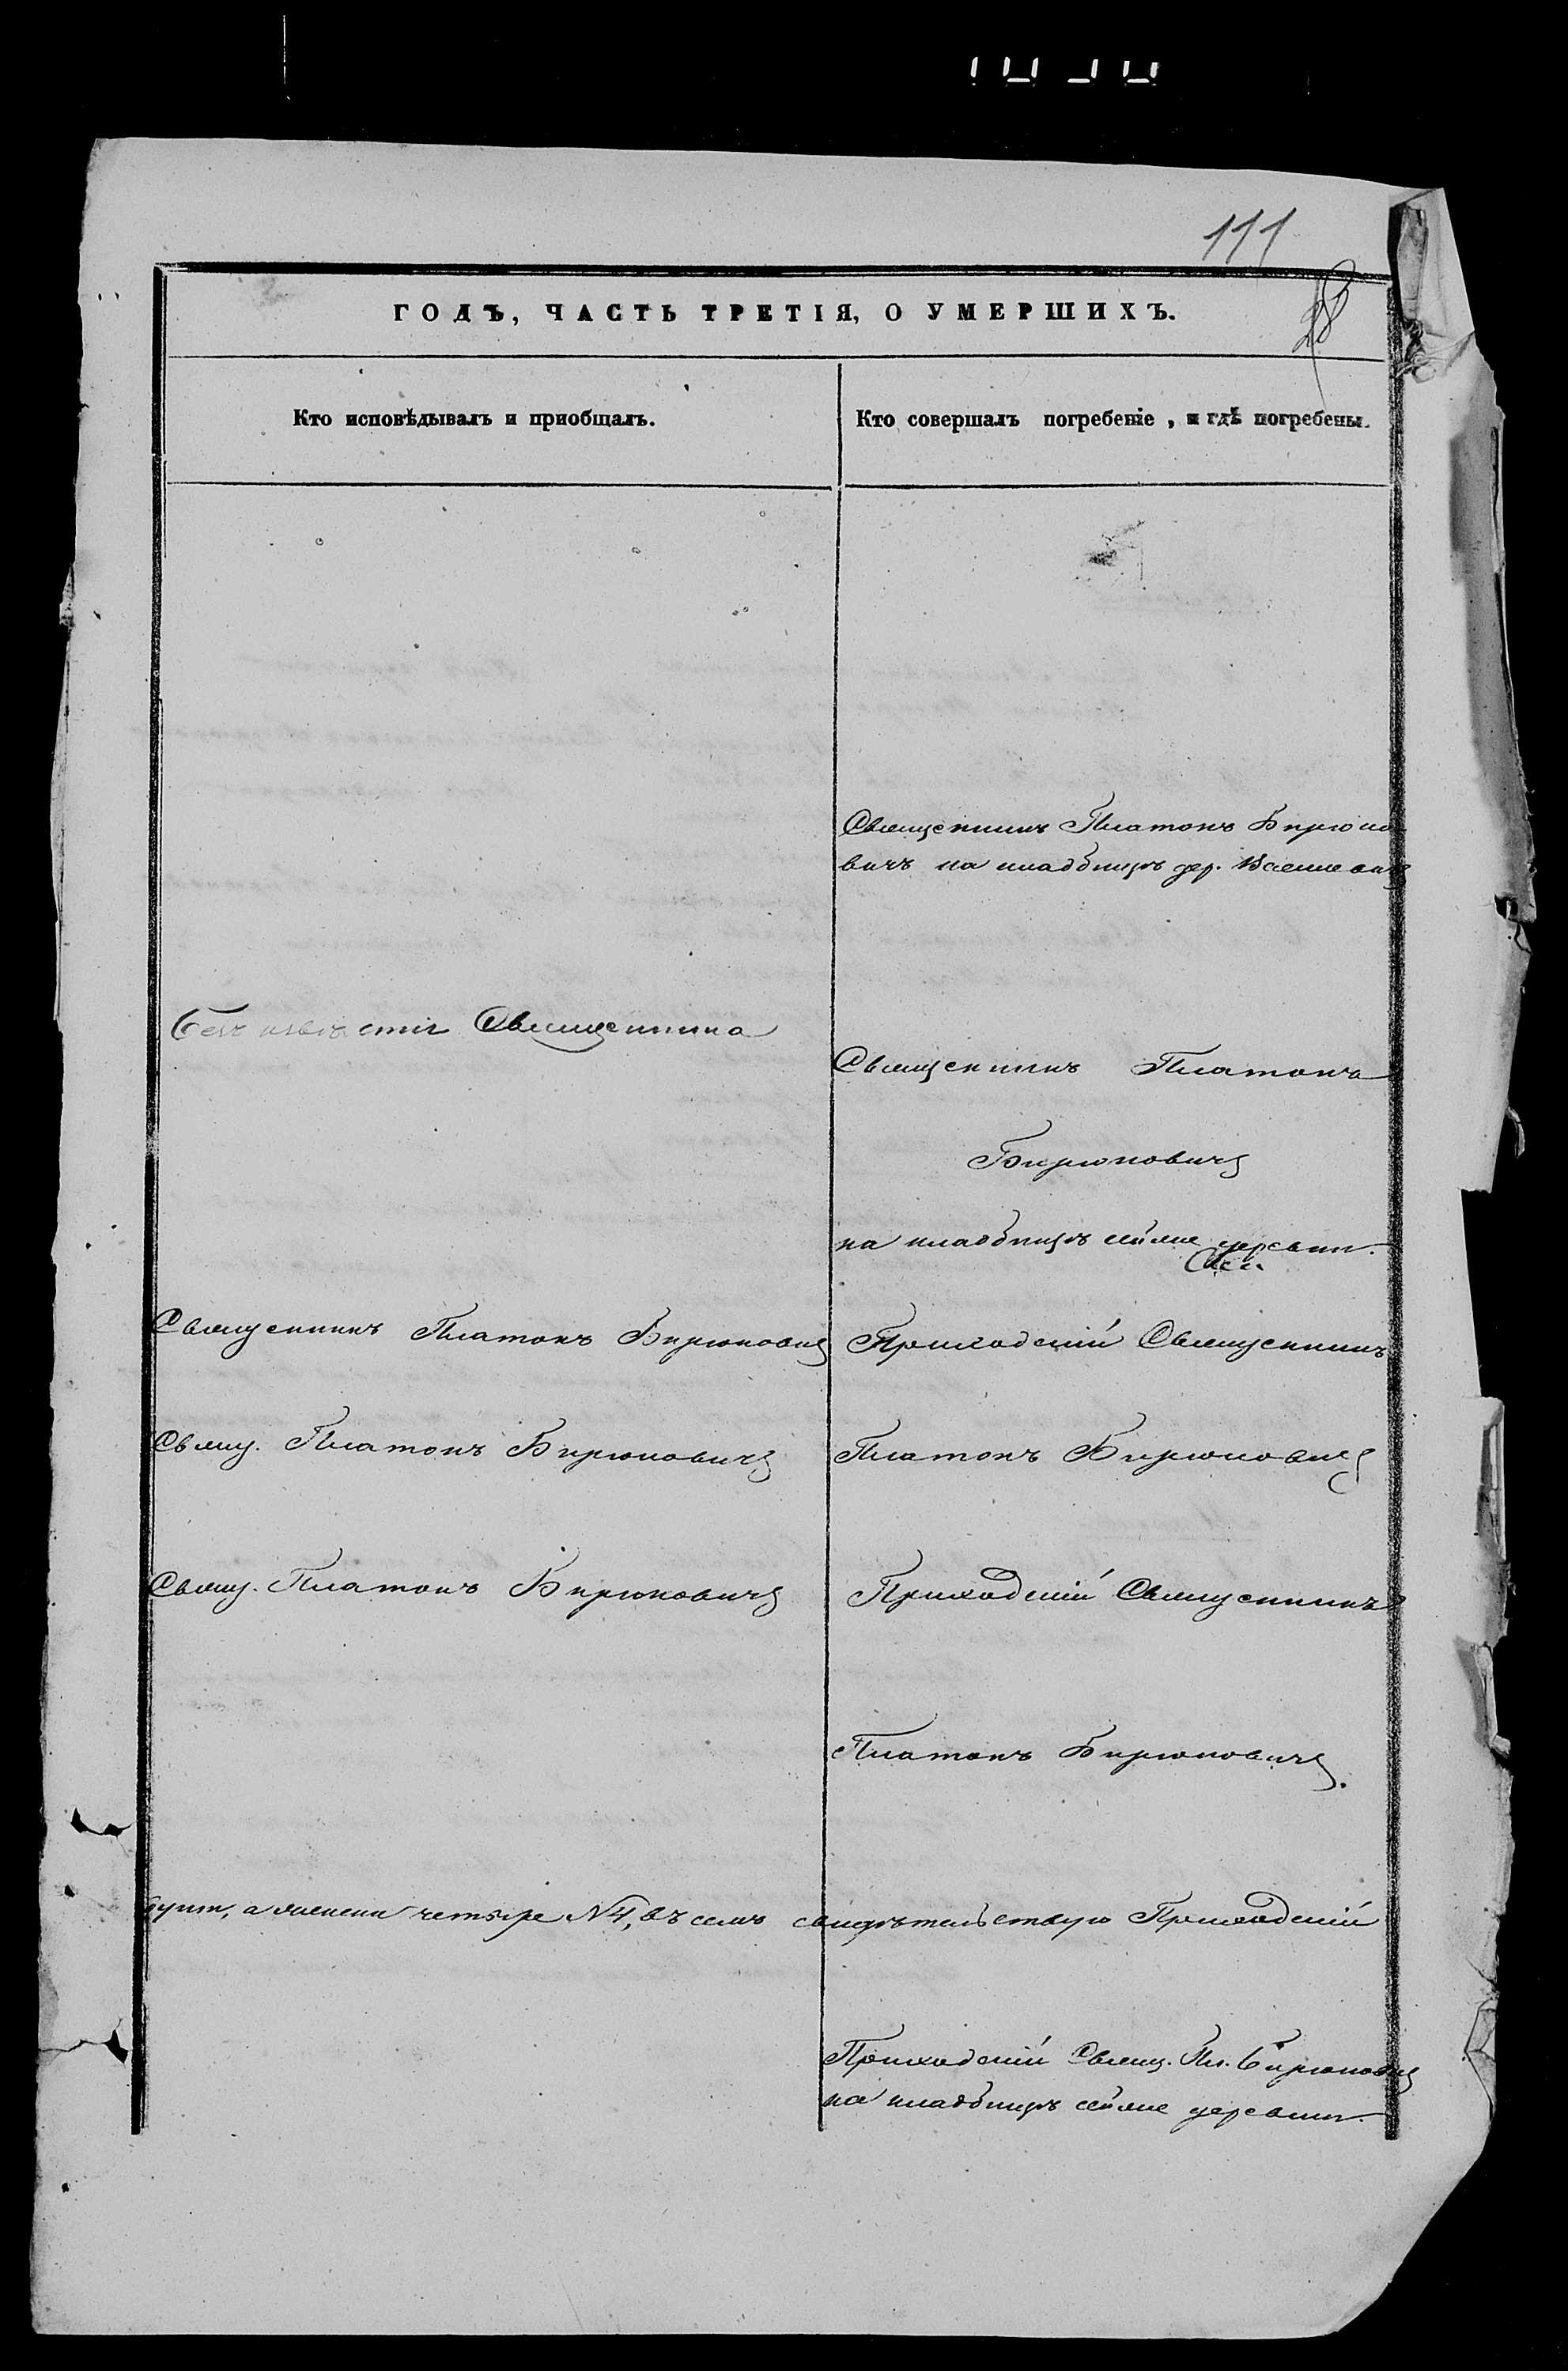 111
28
ГОДЪ, ЧАСТЬ ТРЕТІЯ, О УМЕРШИХЪ.
Кто исповѣдывалъ и пріобщалъ.
Кто совершалъ погребеніе, и гдѣ погребены.
Священникъ Платонъ Бирюко-
вичъ на кладбищѣ дер.
Безъ извѣстія Священника
Священникъ Платонъ
Бирюковичъ
на кладбищѣ сей же деревни.
Священникъ Платонъ Бирюковичъ
Приходскій Священникъ
Свящ. Платонъ Бирюковичъ
Платонъ Бирюковичъ
Свящ. Платонъ Бирюковичъ
Приходскій Священникъ
Платонъ Бирюковичъ.
а именно четыре №4, въ семъ свидѣтельствую Приходскій
Приходскій Свящ. Пл. Бирюковичъ
на кладбищѣ сей же деревни.